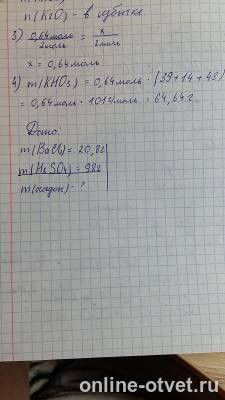 n(K2O) - в избытке.
3) 0,64моль/2моль = x/2моль
x = 0,64моль
4) m(KHO3) = 0,64моль · (39+14+48)
= 0,64моль · 101г/моль = 64,64г.
Дано:
m(BaCl2) = 20,8г
m(H2SO4) = 98г
m(осадок) - ?
online-otvet.ru